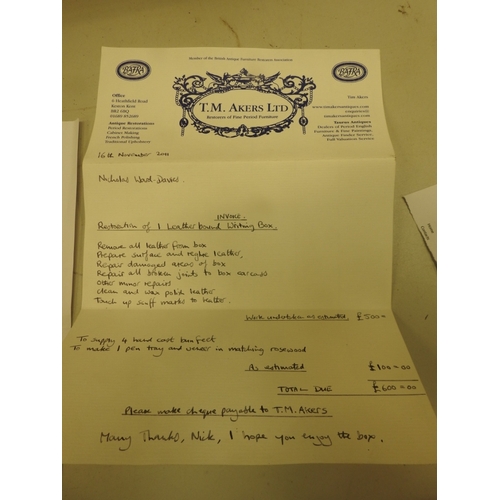 Member of the British Antique Furniture Restorers Association
BAFRA
BAFRA
T.M. AKERS LTD
Restorers of Fine Period Furniture
Office
Keston Kent
BR2
Antique Restorations
Period Restorations
Cabinet Making
French Polishing
Traditional Upholstery
Tim Akers
Taurus Antiques
Dealers of Period English
Furniture & Fine
Antique Finder Service
Full Valuation Service
16th November
Nicholas Ward-Davies.
INVOICE
Restoration of 1 Leather bound Writing Box
Remove all leather from box
Prepare surface and reglue leather,
Repair damaged areas of box
Repair all broken joints to box carcass
Other minor repairs
Clean and wax polish leather
Touch up scuff marks to leather.
Work undertaken as estimated £500=
To supply 4 hand cast bun feet
To make 1 pen tray and veneer in matching rosewood
As estimated £100=00
TOTAL DUE £600=00
Please make cheque payable to T.M. AKERS
Many Thanks, Nick, I hope you enjoy the box.